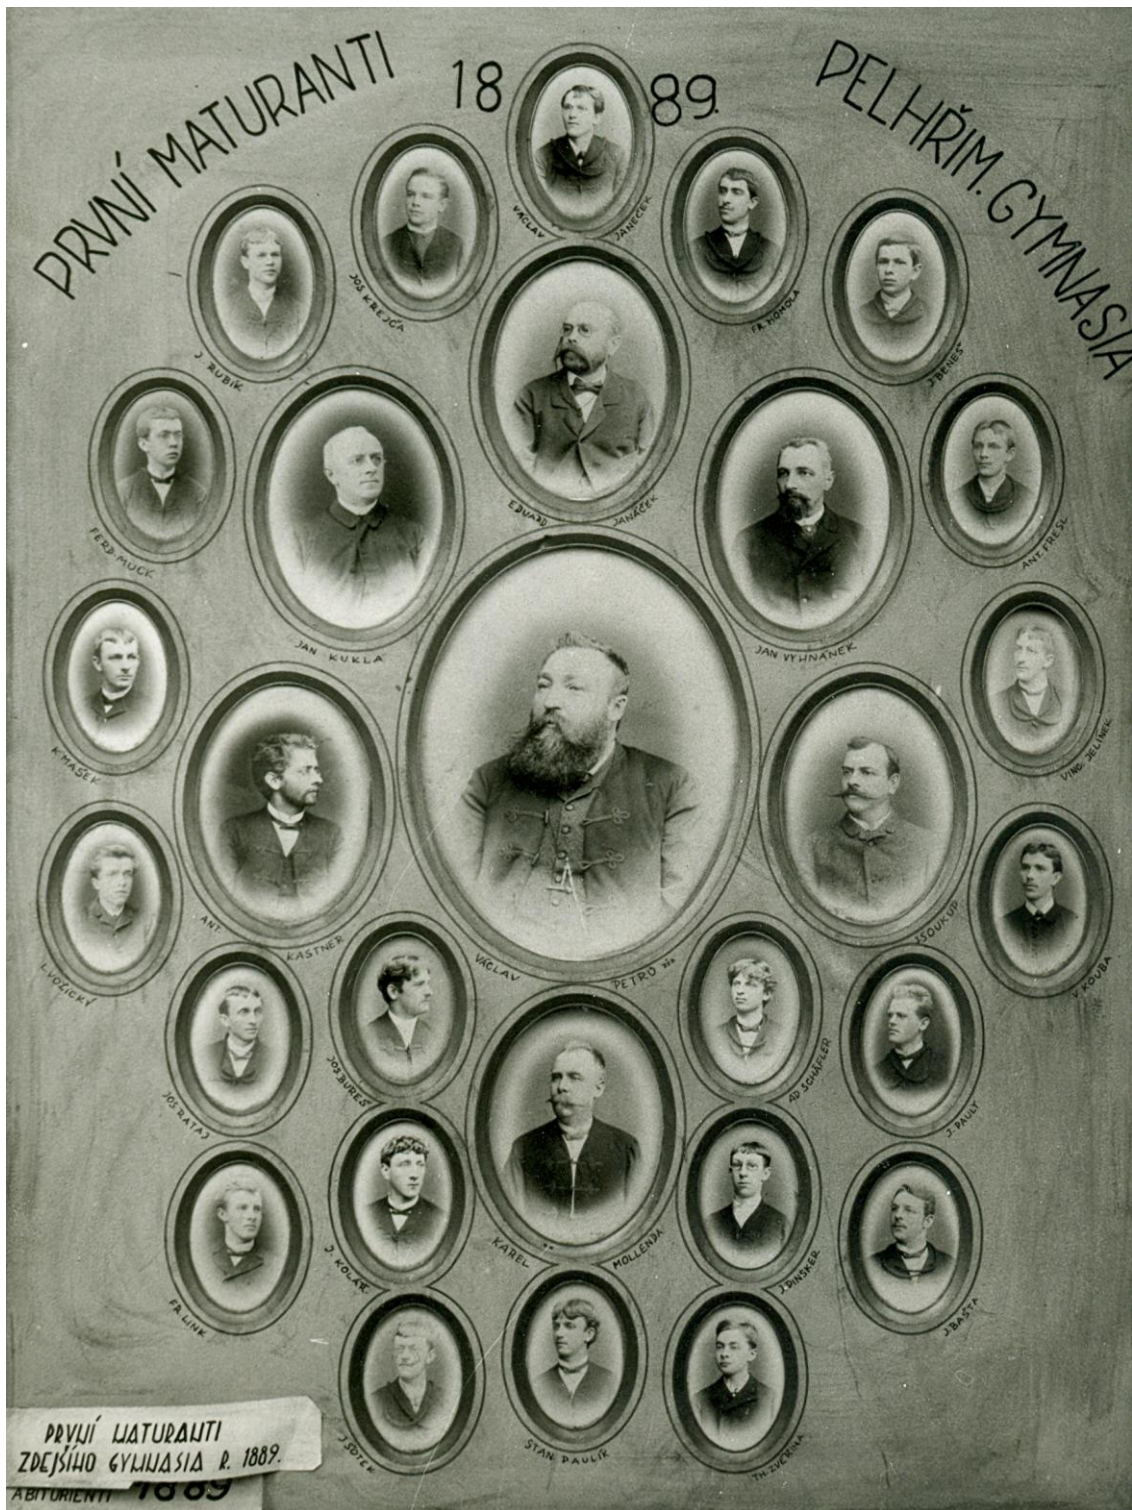 PRVNÍ MATURANTI
1889.
PELHŘIM. GYMNASIA
VÁCLAV JANEČEK
JOS. KREJČA
FR. HOMOLA
J. RUBÍK
J. BENEŠ
EDUARD JANÁČEK
FERD. MUCK
ANT. FRESL
JAN KUKLA
JAN VYHNÁNEK
K. MAŠEK
VINC. JELÍNEK
ANT. KASTNER
J. SOUKUP
L. VOŽICKÝ
V. KOUBA
VÁCLAV PETRŮ
JOS. BUREŠ
AD. SCHÄFLER
JOS. RATAJ
J. PAULÝ
KAREL MOLLENDA
J. KOLÁŘ
J. PINSKER
FR. LINK
J. BAŠTA
J. ŠOTEK
STAN. PAULÍK
TH. ZVĚŘINA
PRVNÍ MATURANTI
ZDEJŠÍHO GYMNASIA R. 1889.
ABITURIENTI 1889